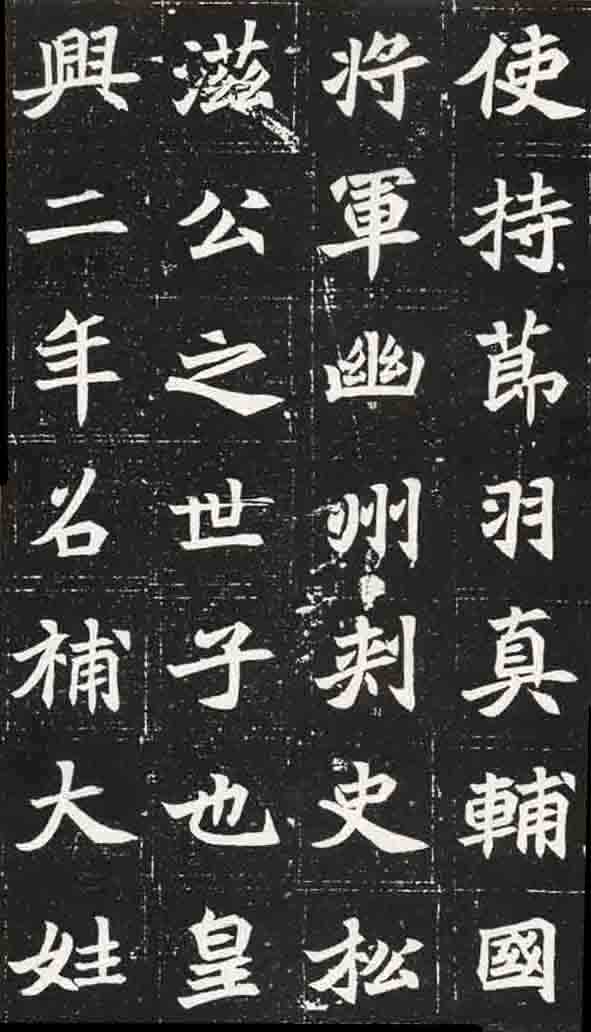 使持節羽真輔國
將軍幽州刺史松
滋公之世子也皇
興二年召補大姓